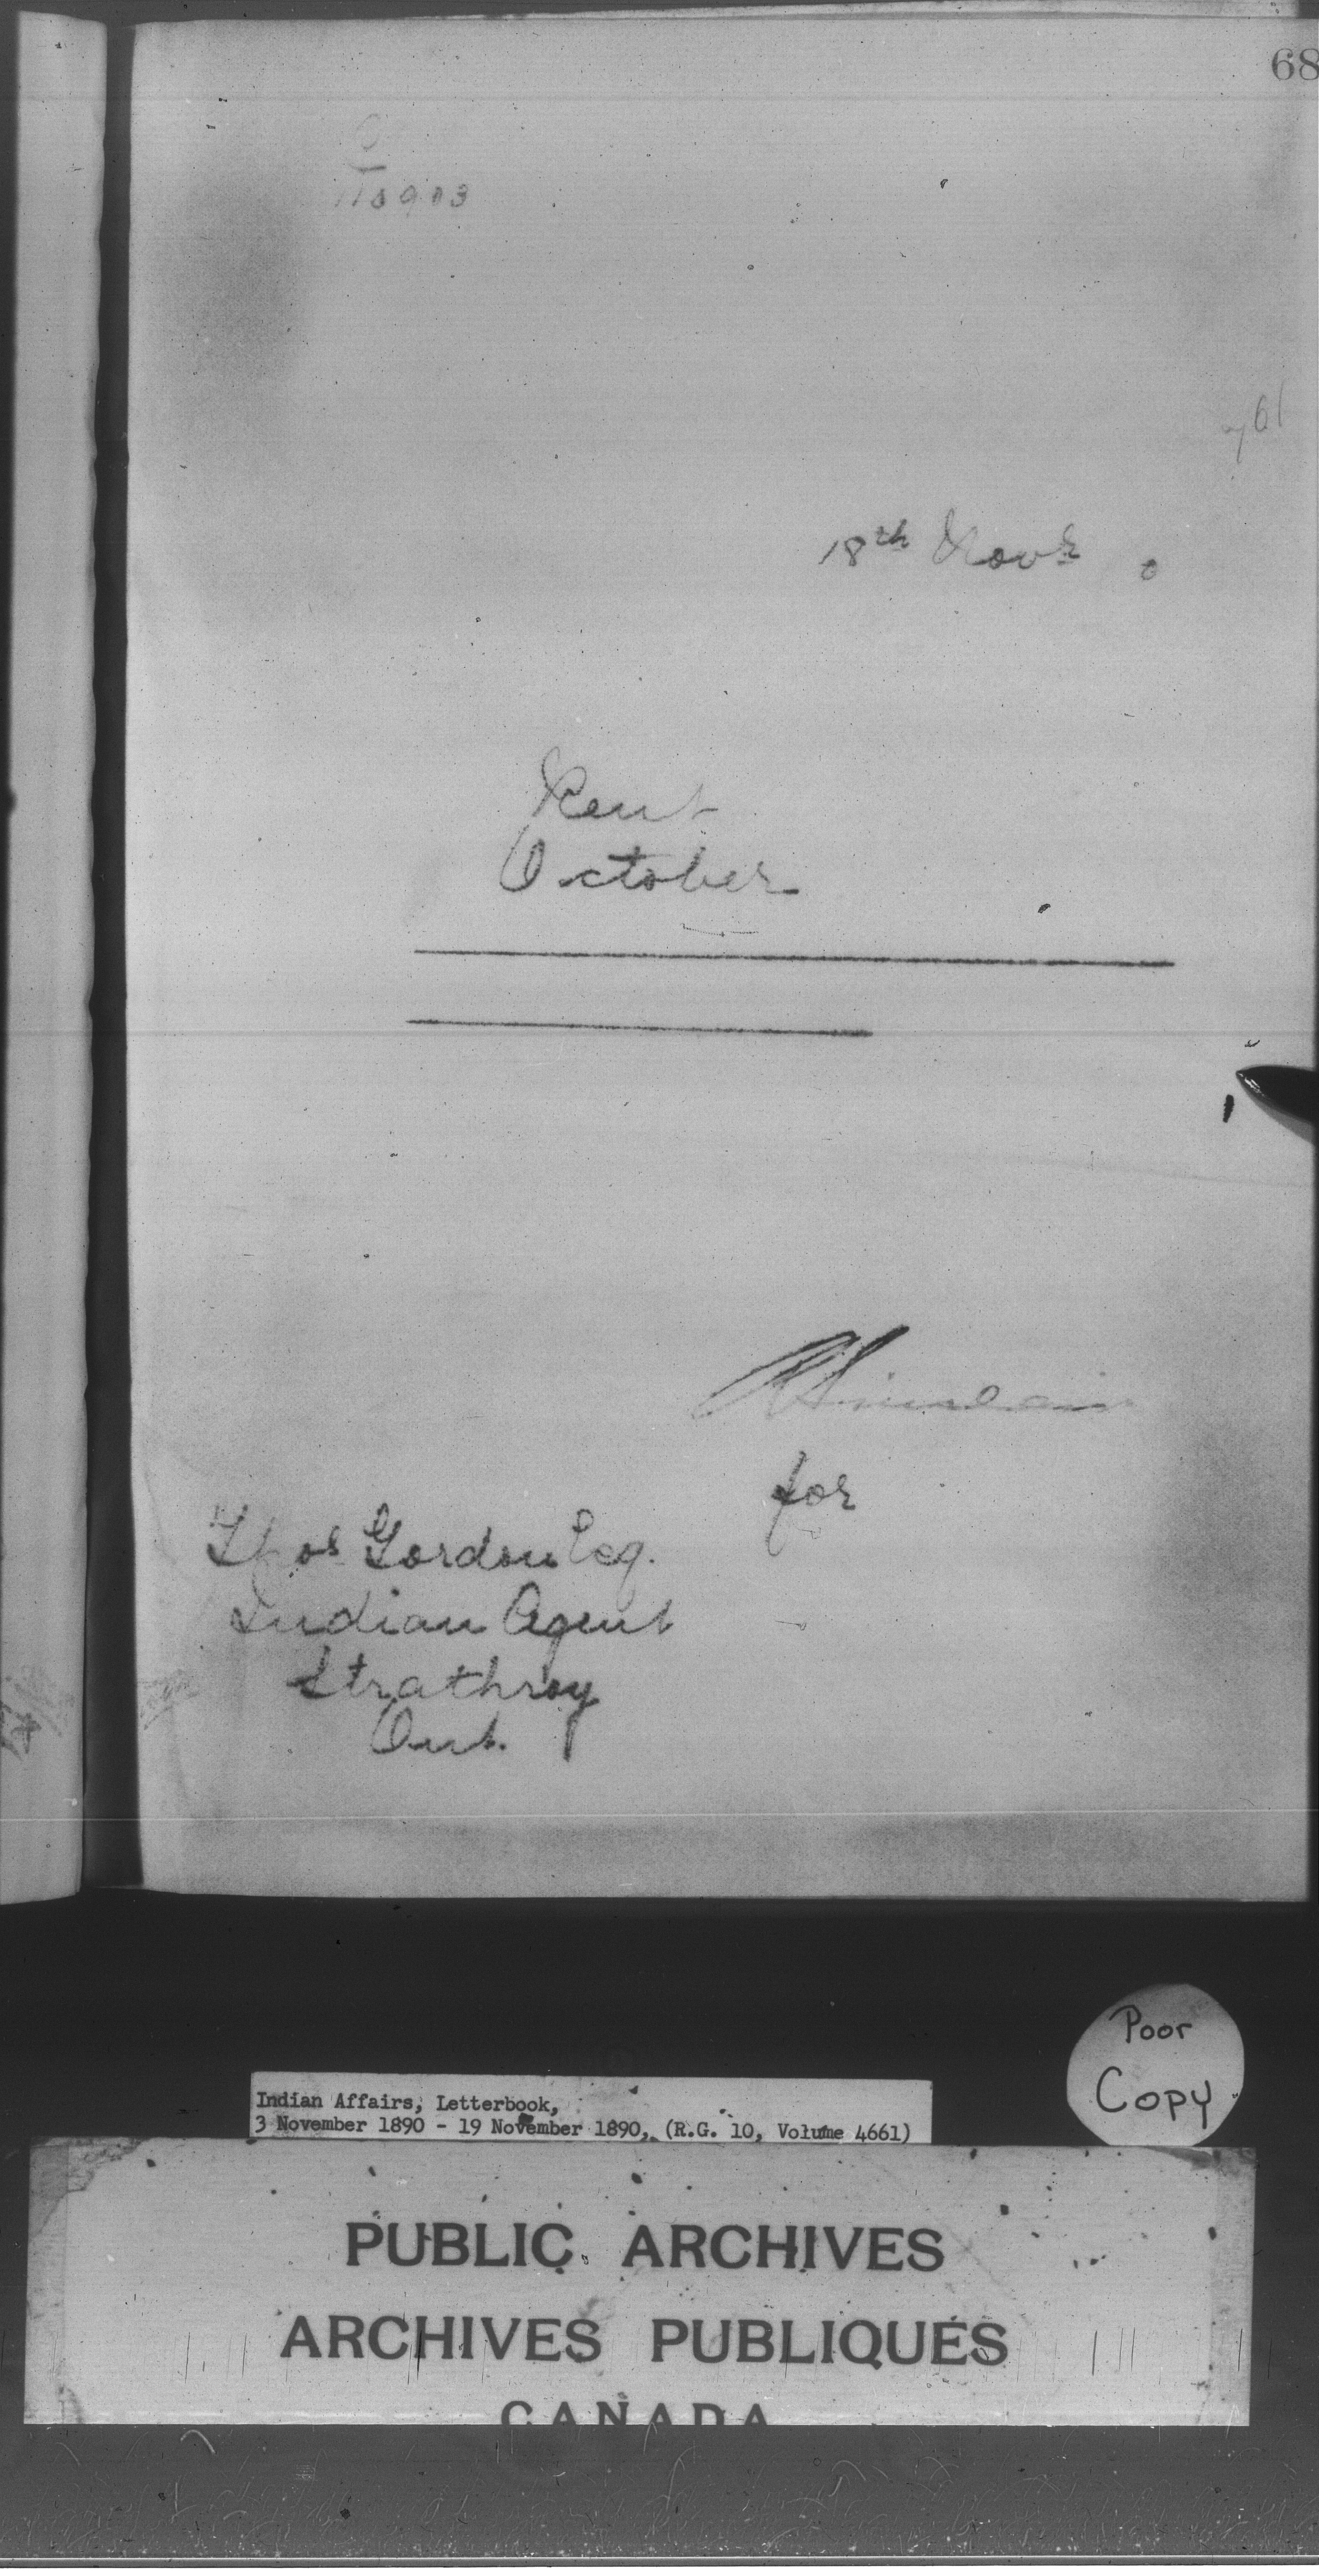 68
18th Novr 0
Rent
October
for
Thos Gordon Esq.
Indian Agent
Strathroy
Ont.
Poor
Copy
Indian Affairs, Letterbook,
3 November 1890 - 19 November 1890, (R.G. 10, Volume 4661)
PUBLIC ARCHIVES
ARCHIVES PUBLIQUES
CANADA